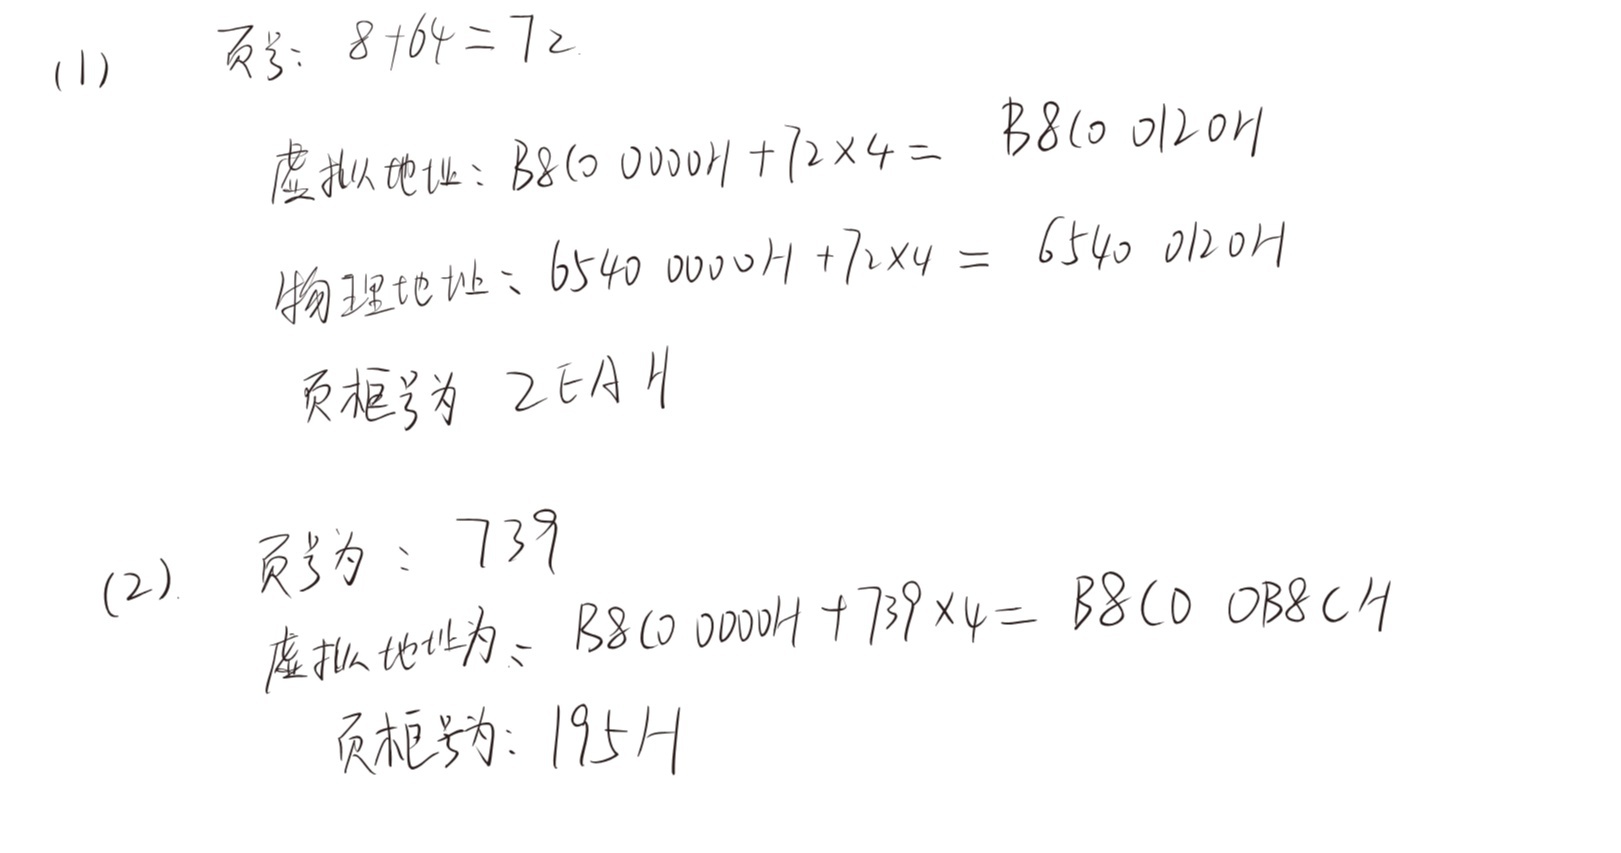 (1) 页号: 8+64=72
虚拟地址: B8C0 0000H+72×4= B8C0 0120H
物理地址: 6540 0000H+72×4= 6540 0120H
页框号为 2EAH
(2). 页号为: 739
虚拟地址为: B8C0 0000H+739×4= B8C0 0B8CH
页框号为: 195H